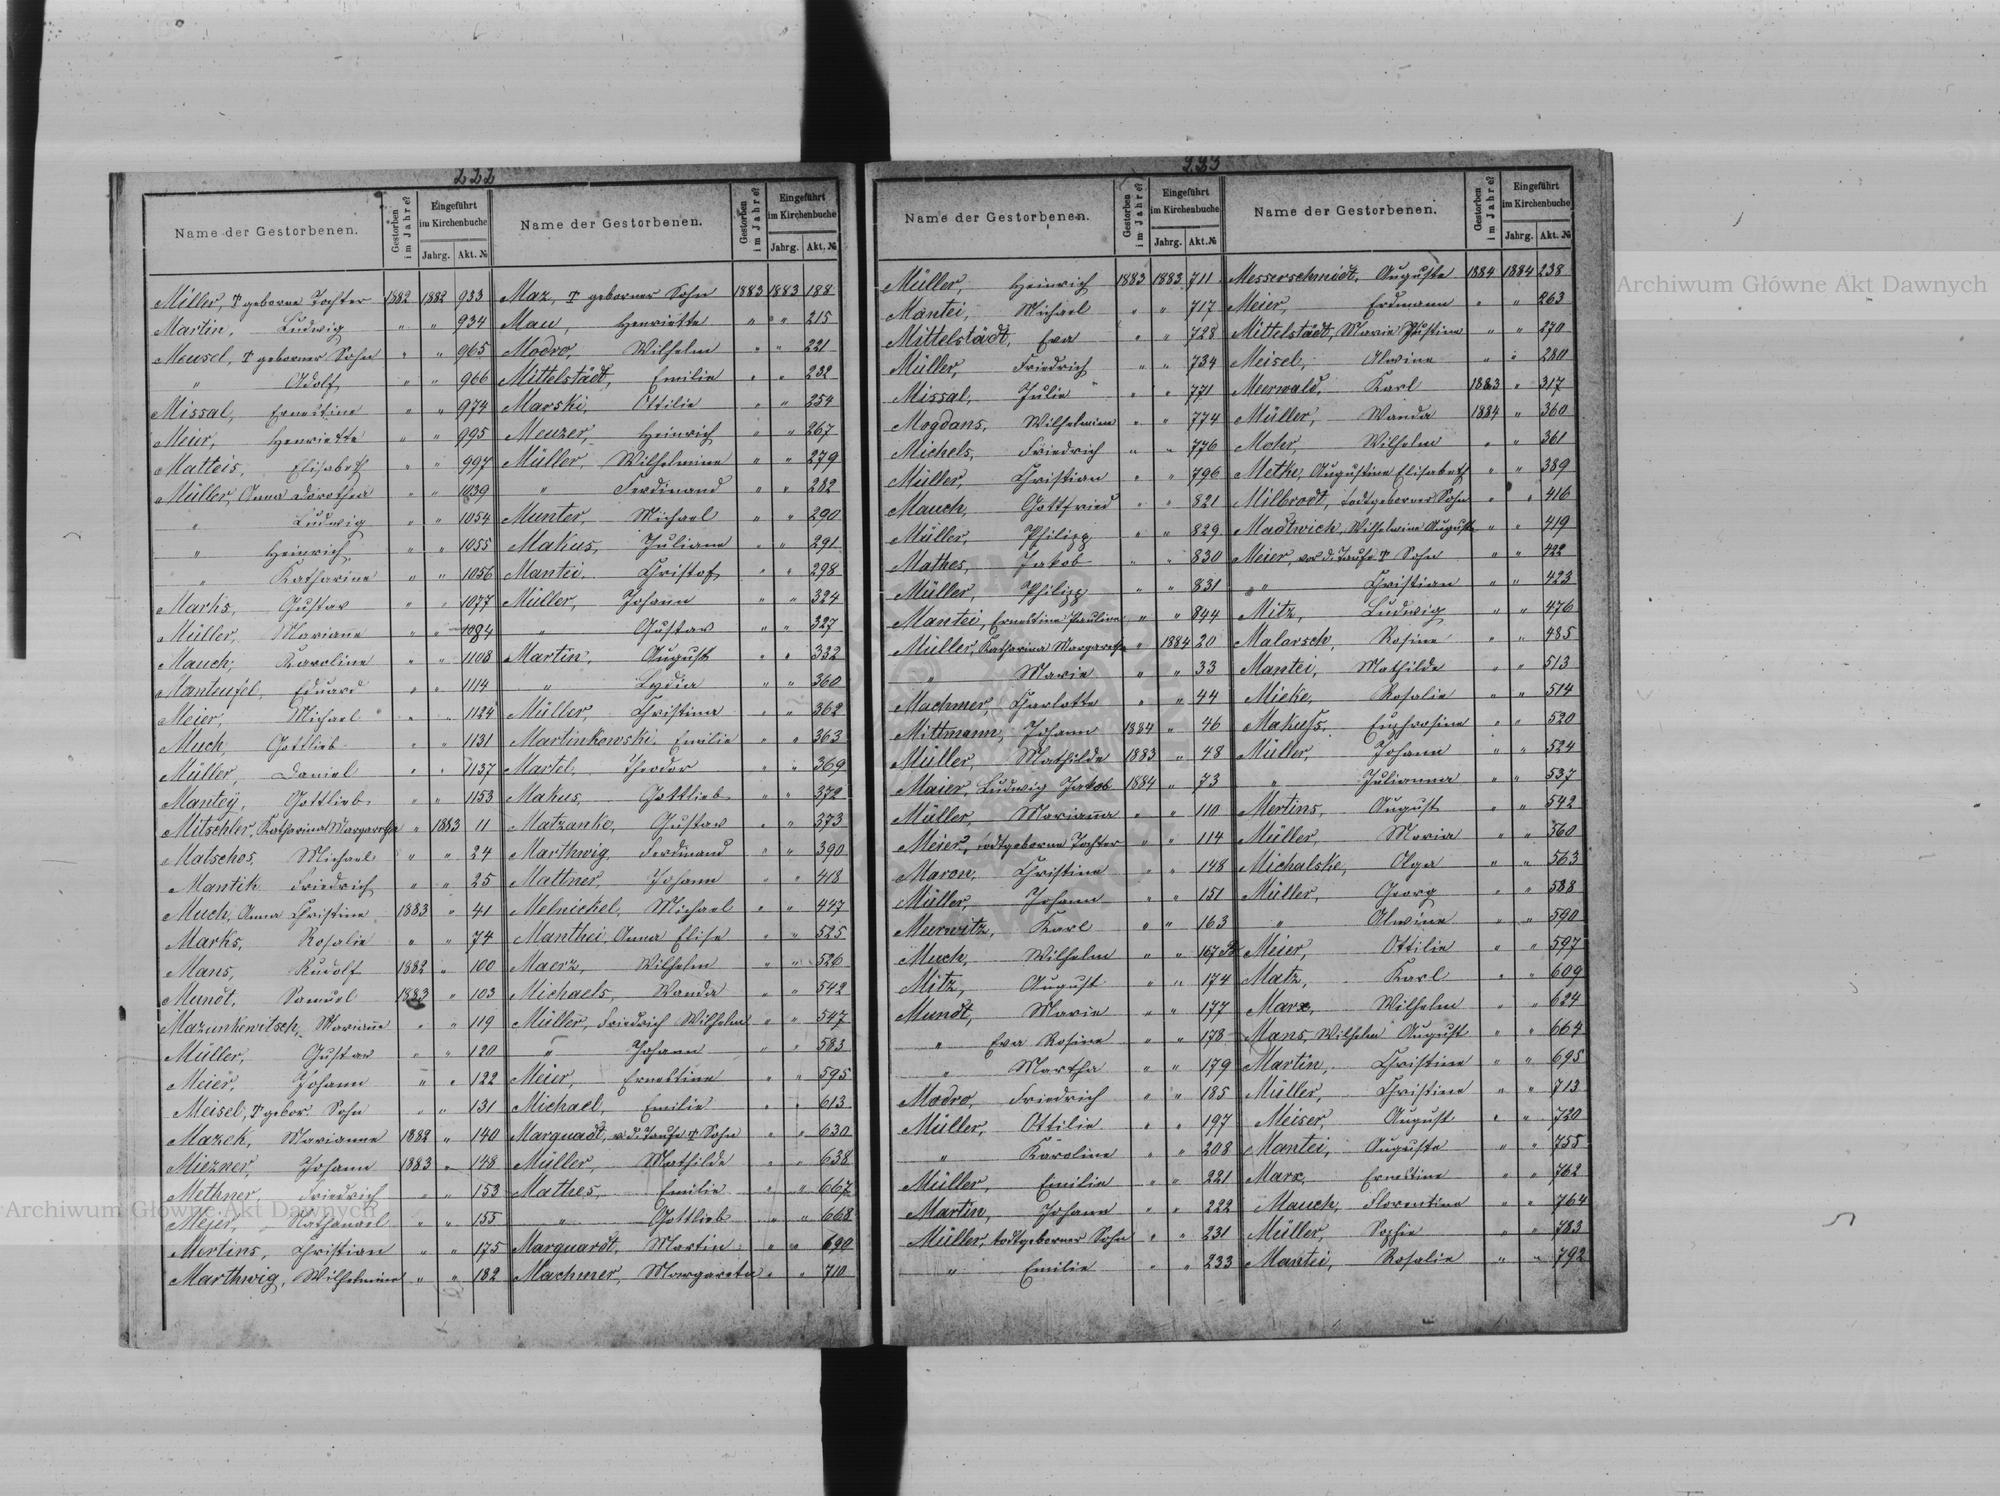 222
Name der Gestorbenen.
Gestorben im Jahre?
Eingeführt im Kirchenbuche
Jahrg. Akt. №
Name der Gestorbenen.
Gestorben im Jahre?
Eingeführt im Kirchenbuche
Jahrg. Akt. №
Miller, T geborne Tochter 1882 1882 933
Martin, Ludwig " " 934
Meusel, T geborner Sohn " " 965
" Adolf " " 966
Missal, Ernestine " " 974
Meier, Henriette " " 995
Matteis, Elisabeth " " 997
Müller, Anna Dorothea " " 1039
" Ludwig " " 1054
" Heinrich " " 1055
" Katharine " " 1056
Marks, Gustav " " 1077
Müller, Marianne " " 1084
Mauch, Karoline " " 1108
Manteufel, Eduard " " 1114
Meier, Michael " " 1124
Much, Gottlieb " " 1131
Müller, Daniel " " 1137
Mantey, Gottlieb " " 1153
Mitschler, Katharina Margarethe " 1883 11
Matschos, Michael " " 24
Mantik Friedrich " " 25
Much, Anna Christine 1883 " 41
Marks, Rosalie " " 74
Mans, Rudolf 1882 " 100
Mundt, Samuel 1883 " 103
Mazunkewitsch, Marianne " " 119
Müller, Gustav " " 120
Meier, Johann " " 122
Meisel, T gebor. Sohn " " 131
Mazek, Marianne 1882 " 140
Miezner, Johann 1883 " 148
Methner, Friedrich " " 153
Mejer, Nathanael " " 155
Mertins, Christian " " 175
Marthwig, Wilhelmine " " 182
Maz, T geborner Sohn 1883 1883 188
Mau, Henriette " " 215
Modro, Wilhelm " " 221
Mittelstädt, Emilie " " 232
Marski, Ottilie " " 254
Meuzer, Heinrich " " 267
Müller, Wilhelmine " " 279
" Ferdinand " " 282
Munter, Michael " " 290
Makus, Juliane " " 291
Mantei, Christof " " 298
Müller, Johann " " 324
" Gustav " " 327
Martin, August " " 332
" Lydia " " 360
Müller, Christina " " 362
Martinkowski, Emilie " " 363
Martel, Theodor " " 369
Makus, Gottlieb " " 372
Matzanke, Gustav " " 373
Marthwig, Ferdinand " " 390
Mattner, Johann " " 418
Melnickel, Michael " " 447
Manthei, Anna Elise " " 525
Maerz, Wilhelm " " 526
Michaels, Wanda " " 542
Müller, Friedrich Wilhelm " " 547
" Johann " " 583
Meier, Ernestine " " 595
Michael, Emilie " " 613
Marquadt, v. d. Taufe T Sohn " " 630
Müller, Mathilde " " 638
Mathes, Emilie " " 667
" Gottlieb " " 668
Marquardt, Martin " " 690
Machmer, Margareta " " 710
223
Name der Gestorbenen.
Gestorben im Jahre?
Eingeführt im Kirchenbuche
Jahrg. Akt. №
Name der Gestorbenen.
Gestorben im Jahre?
Eingeführt im Kirchenbuche
Jahrg. Akt. №
Müller, Heinrich 1883 1883 711
Mantei, Michael " " 717
Mittelstädt, Eva " " 728
Müller, Friedrich " " 734
Missal, Julie " " 771
Mogdans, Wilhelmine " " 774
Michels, Friedrich " " 776
Müller, Christian " " 796
Mauch, Gottfried " " 821
Müller, Philipp " " 829
Mathes, Jakob " " 830
Müller, Philipp " " 831
Mantei, Ernestine Pauline " " 844
Müller, Katharina Margarethe " 1884 20
" Marie " " 33
Machmer, Charlotte " " 44
Mittmann, Johann 1884 " 46
Müller, Mathilde 1883 " 48
Maier, Ludwig Jakob 1884 " 73
Müller, Marianna " " 110
Meier, todtgeborne Tochter " " 114
Maron, Christine " " 148
Müller, Johann " " 151
Meerwitz, Karl " " 163
Much, Wilhelm " " 167
Mitz, August " " 174
Mundt, Marie " " 177
" Eva Rosine " " 178
" Martha " " 179
Modro, Friedrich " " 185
Müller, Ottilie " " 197
" Karoline " " 208
Müller, Emilie " " 221
Martin, Johann " " 222
Müller, todtgeborner Sohn " " 231
" Emilie " " 233
Messerschmidt, Auguste 1884 1884 238
Meier, Erdmann " " 263
Mittelstädt, Marie Justine " " 270
Meisel, Alwine " " 280
Meerwald, Karl 1883 " 317
Müller, Wanda 1884 " 360
Moher, Wilhelm " " 361
Metke, Augustine Elisabeth " " 389
Milbrodt, todtgeborner Sohn " " 416
Madtwich, Wilhelmine Auguste " " 419
Meier, vor d. Taufe T Sohn " " 422
" Christian " " 423
Mitz, Ludwig " " 476
Malarsch, Rosine " " 485
Mantei, Mathilde " " 513
Mieke, Rosalie " " 514
Makuss, Euphrosine " " 520
Müller, Johann " " 524
" Julianna " " 537
Mertins, August " " 542
Müller, Maria " " 560
Michalske, Olga " " 563
Müller, Georg " " 588
" Alwine " " 590
Meier, Ottilie " " 597
Matz, Karl " " 609
Marx, Wilhelm " " 624
Mans, Wilhelm August " " 664
Martin, Christine " " 695
Müller, Christine " " 713
Meiser, August " " 720
Mantei, Auguste " " 755
Marx, Ernestine " " 762
Mauch, Florentine " " 764
Müller, Sophie " " 783
Mantei, Rosalie " " 792
Archiwum Główne Akt Dawnych
Archiwum Główne Akt Dawnych